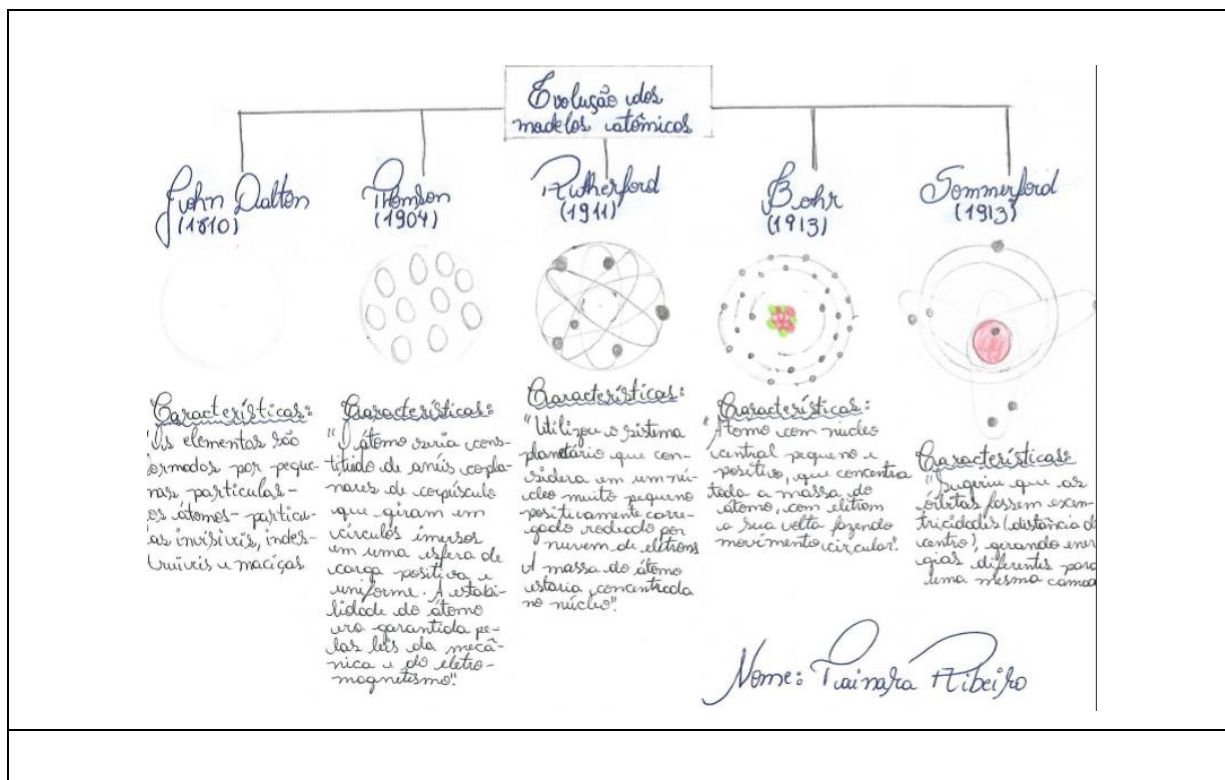 Evolução dos
modelos atômicos
John Dalton
(1810)
Thomson
(1904)
Rutherford
(1911)
Bohr
(1913)
Sommerford
(1913)
Características:
"Os elementos são
ormados por peque-
nas partículas-
os átomos- partícu-
as invisíveis, indes-
truíveis e maciças
Características:
"O átomo seria cons-
tituído de anéis copla-
nares de corpúsculo
que giram em
círculos imersos
em uma esfera de
carga positiva e
uniforme. A estabi-
lidade do átomo
era garantida pe-
las leis da mecâ-
nica e do eletro-
magnetismo".
Características:
"Utilizou o sistema
planetário que con-
sidera em um nú-
cleo muito pequeno
positivamente carre-
gado rodeado por
nuvem de elétrons
A massa do átomo
estaria concentrada
no núcleo".
Características:
"Átomo com núcleo
central pequeno e
positivo, que concentra
toda a massa do
átomo, com elétron
a sua volta fazendo
movimento circular".
Características
"Sugeriu que as
órbitas fossem excen-
tricidades (distância d
centro), girando ener
gias diferentes para
uma mesma camad
Nome: Tainara Ribeiro